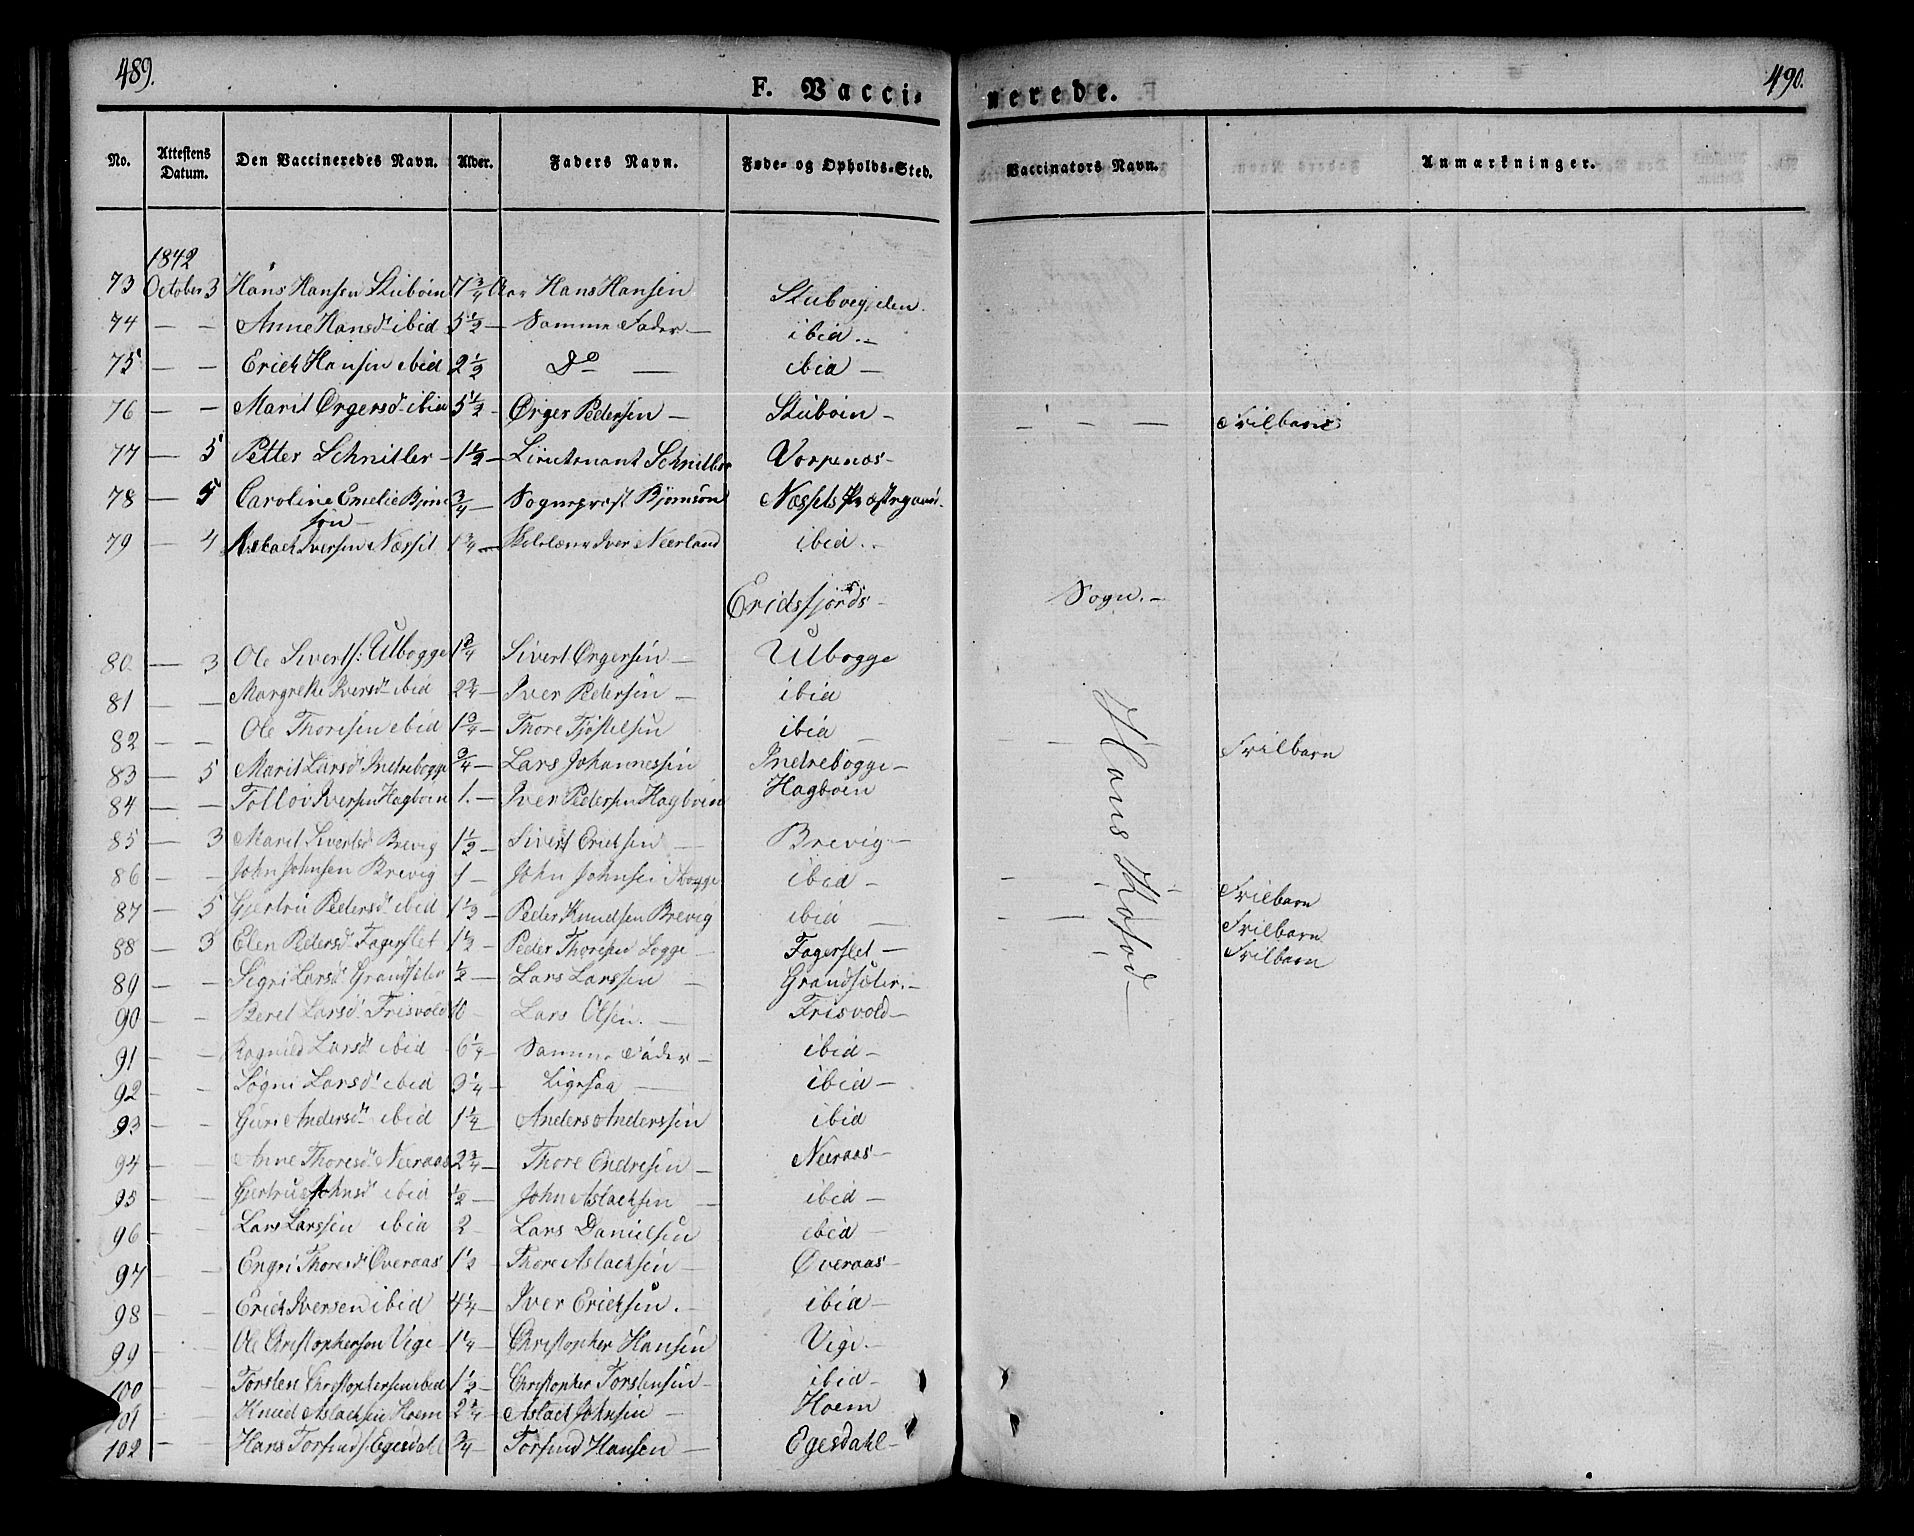 489.
F. Vacci-
nerede.
490.
No. Attestens Datum. Den Vaccineredes Navn. Alder. Faders Navn. Føde- og Opholds-Sted. Vaccinators Navn. Anmærkninger.
1842
73 October 3 Hans Hansen Stuboin 7 3/4 Aar Hans Hansen Stubvejelen
74 — — Anne Hansd. ibid 5 1/2 — Samme Fader — ibid. —
75 — — Erich Hansen ibid 2 1/2 Do — ibid —
76 — — Marit Ørgersd. ibid 5 1/2 — Ørger Pedersen — Stuboin — — — — Frilbarn
77 — 5 Petter Schnitler — 1 1/2 — Lieutenant Schnitler Vorpenæs —
78 — 5 Caroline Emelie Bjørnsøn — 3/4 — Sognepræst Bjørnsøn Næssets Præstegaard.
79 — 4 Aslach Iversen Næsset 1 3/4 — Skolelærer Iver Neerland ibid. —
Eridsfjords — Sogn. —
80 — 3 Ole Siverts: Utbogge 1 3/4 Sivert Ørgersen — Utbogge
81 — — Margrethe Iversd. ibid 2 3/4 — Iver Pedersen — ibid
82 — — Ole Thoresen ibid 1 3/4 — Thore Tjøstelsen ibid — — — Frilbarn
83 — 5 Marit Larsd. Indrebogge 3/4 — Lars Johannessen Indrebogge —
84 — — Tollov Iversen Hagboen 1. — Iver Pedersen Hagboen Hagboen
85 — 3 Marit Sivertsd. Brevig 1 1/2 — Sivert Erichsen — Brevig —
86 — — John Johnsen Brevig 1 — John Johnsen ibid — — Frilbarn
87 — 5 Gjertru Pedersd. ibid 1 1/2 — Peder Knudsen Brevig ibid — — — Frilbarn
88 — 3 Elen Pedersd. Fagerslet 1 1/2 — Peder Thoresen — Fagerslet — — Frilbarn
89 — — Sigri Larsd. Grandsæter 1/2 — Lars Larssen — Grandsæter. —
90 — — Beret Larsd. Frisvold 10 — Lars Olsen. — Frisvold —
91 — — Ragnild Larsd. ibid 6 1/4 — Samme Fader — ibid —
92 — — Søgni Larsd. ibid 3 1/4 — Ligesaa — ibid —
93 — — Guri Andersd. ibid 1 1/4 — Anders Anderssen ibid
94 — — Anne Thoresd. Neeraas 2 3/4 — Thore Endresen — Neeraas —
95 — — Gjertru Johnsd. ibid 1/2 — John Aslachsen — ibid —
96 — — Lars Larssen ibid 2 — Lars Danielsen ibid —
97 — — Engri Thoresd. Øveraas 1 1/2 — Thore Aslachsen — Øveraas —
98 — — Erich Iversen ibid 4 1/4 — Iver Erichsen. — ibid —
99 — — Ole Christophersen Vige 1 1/4 — Christopher Hansen Vige. —
100 — — Torsten Christophersen ibid 1 1/2 — Christopher Torstensen — ibid. —
101 — — Knud Aslachsen Hoem 2 3/4 — Aslach Johnsen — Hoem
102 — — Hans Torfinds. Egesdahl 3/4 — Torfind Hansen — Egesdahl —
Hans Kofod —